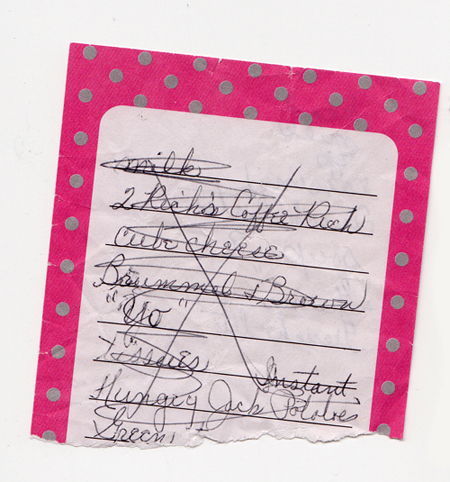 milk
2 Rich's Coffee Rich
Cube cheese
Brummal & Brown
"Yo"
Tissues
Instant
Hungry Jack Potatoes
Green